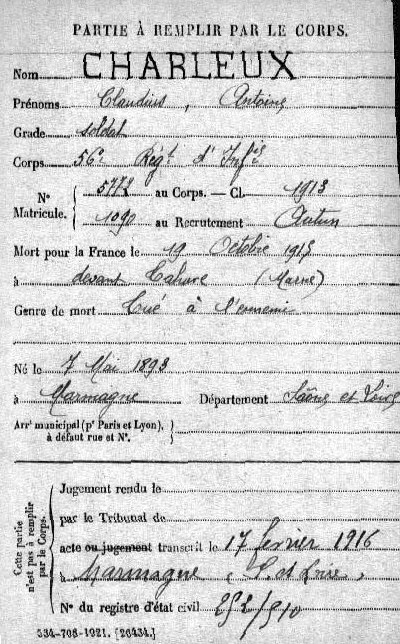 PARTIE À REMPLIR PAR LE CORPS.
Nom CHARLEUX
Prénoms Claudius, Antoine
Grade soldat
Corps 56e Régt d'Infie
N° Matricule. { 5772 au Corps. — Cl. 1913
1090 au Recrutement Autun
Mort pour la France le 19 Octobre 1915
à devant Tahure (Marne)
Genre de mort Tué à l'ennemi
Né le 7 Mai 1893
à Marmagne Département Saône et Loire
Arrt municipal (pr Paris et Lyon), }
à défaut rue et N°.
Cette partie n'est pas à remplir par le Corps.
Jugement rendu le
par le Tribunal de
acte ou jugement transcrit le 17 fevrier 1916
à Marmagne (S. et Loire)
N° du registre d'état civil
534-708-1921. [26434.]